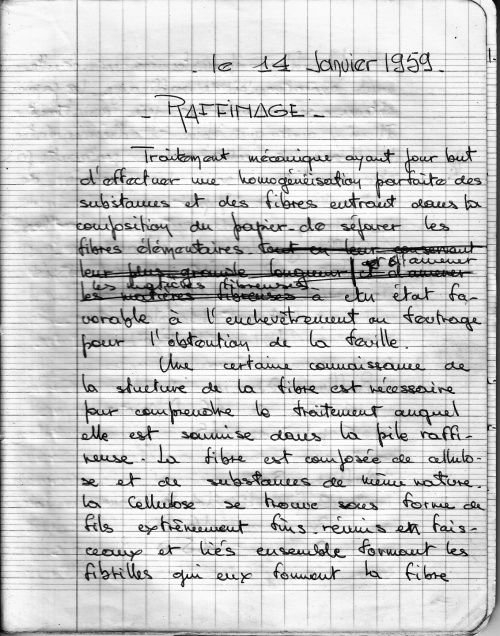 le 14 Janvier 1959.
- RAFFINAGE -
Traitement mécanique ayant pour but
d'effectuer une homogénéisation parfaite des
substances et des fibres entrant dans la
composition du papier - de séparer les
fibres élémentaires - tout en leur conservant
leur plus grande longueur et d'amener
et d'amener
les matières fibreuses
les matières fibreuses a un état fa-
vorable à l'enchevêtrement ou feutrage
pour l'obtention de la feuille.
Une certaine connaissance de
la stucture de la fibre est nécessaire
pour comprendre le traitement auquel
elle est soumise dans la pile raffi-
neuse. La fibre est composée de cellulo-
se et de substances de même nature.
La Cellulose se trouve sous forme de
fils extrêmement fins réunis en fais-
ceaux et liés ensemble formant les
fibrilles qui eux forment la fibre